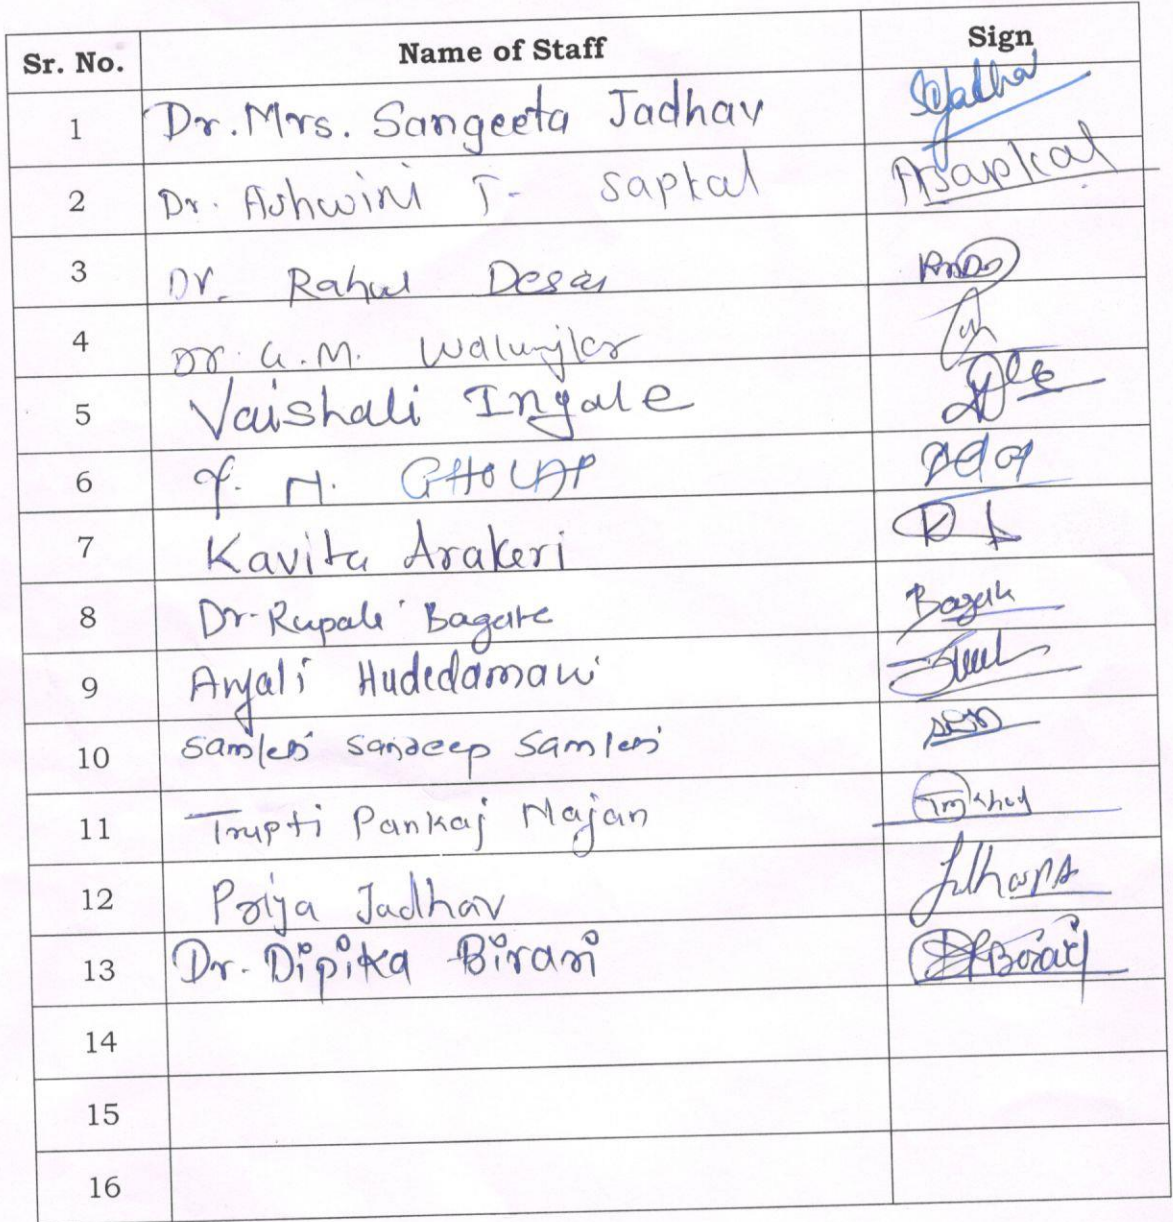 Sr. No. Name of Staff Sign
1 Dr. Mrs. Sangeeta Jadhav SJadhav
2 Dr. Ashwini T. Sapkal Asapkal
3 Dr. Rahul Desai
4 Dr. G.M. Walunjkar
5 Vaishali Ingale
6 Y. N. GHOLAP
7 Kavita Arakeri
8 Dr. Rupali Bagate Bagate
9 Anjali Hudedamani
10 Sandeep
11 Trupti Pankaj Majan
12 Priya Jadhav
13 Dr. Dipika Birari
14
15
16